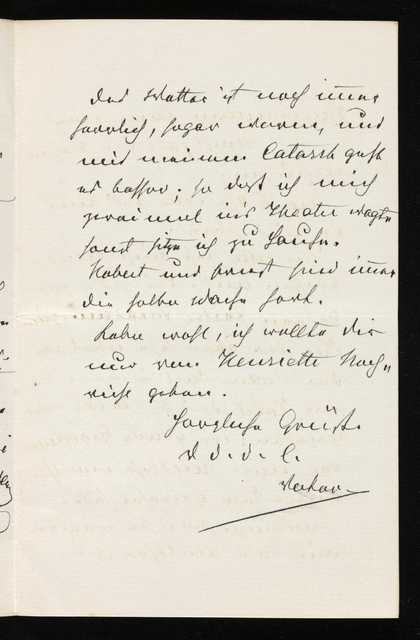 Das Wetter ist noch immer
herrlich, sogar warm, und
mit meinem Catarrh geht
es besser; so daß ich mich
zweimal in's Theater wagte
sonst sitze ich zu Hause.
Robert und sind immer
die halbe Woche fort.
Lebe wohl, ich wollte dir
nur von Henriette Nach„
richt geben.
Herzliche Grüße.
D. d. d. l.